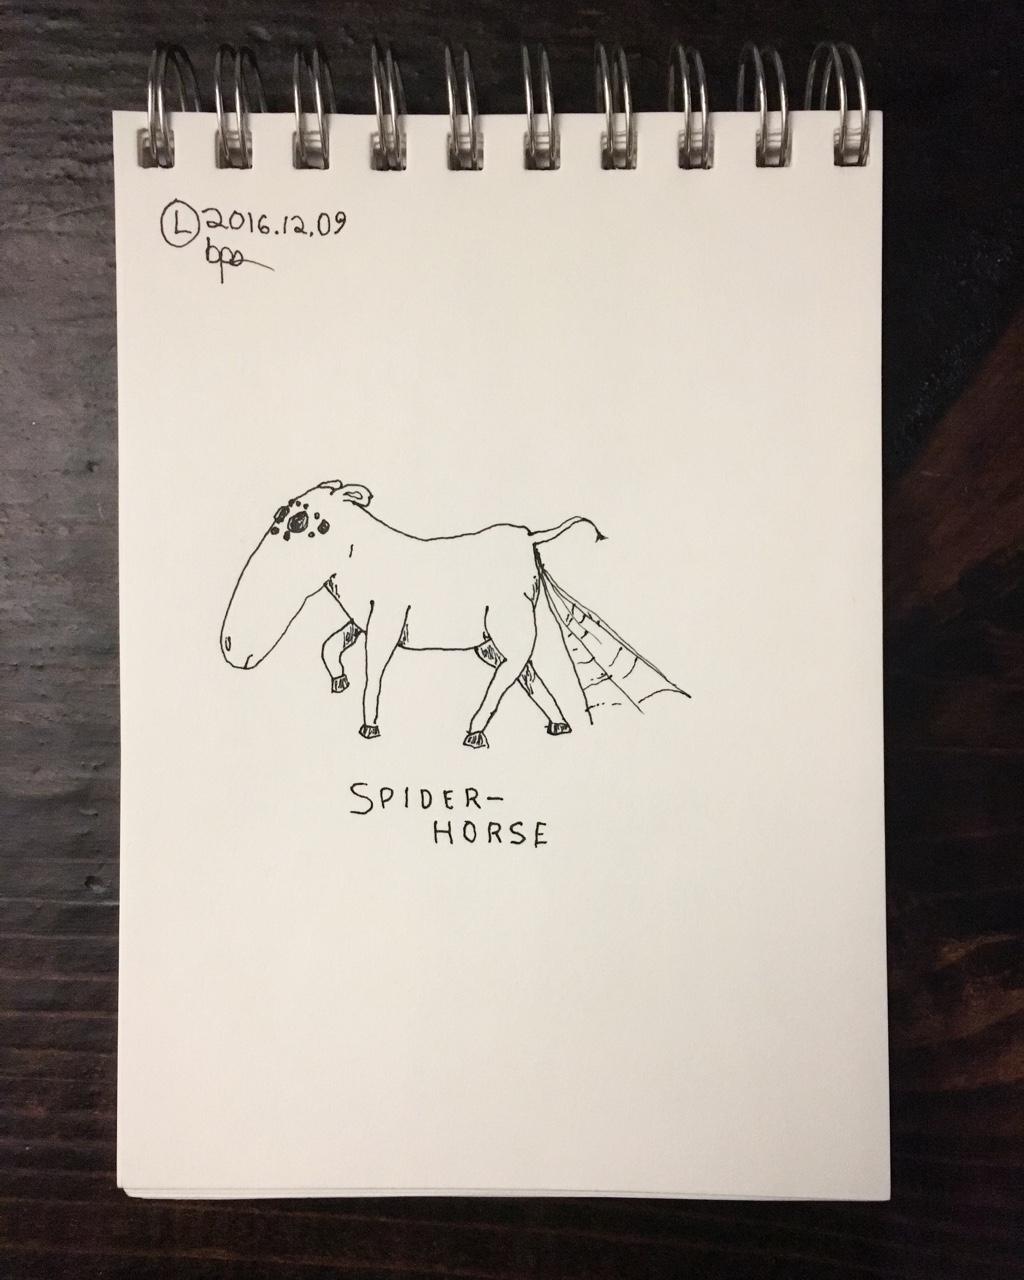 Ⓛ 2016.12.09
bpa
SPIDER-
HORSE